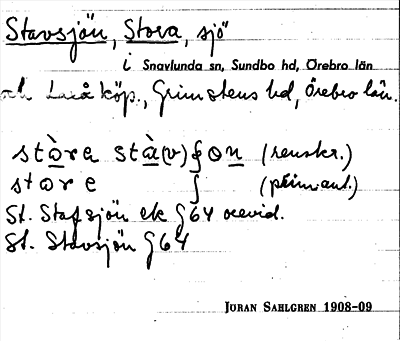 Stavsjön, Stora, sjö
i Snavlunda sn, Sundbo hd, Örebro län
och Laxå köp., Grimstens hd, Örebro län.
stòra stà(v)ʃon (renskr.)
stora ʃ (primant.)
St. Stafsjön ek G64 ocevid.
St. Stavsjön G64
JÖRAN SAHLGREN 1908-09